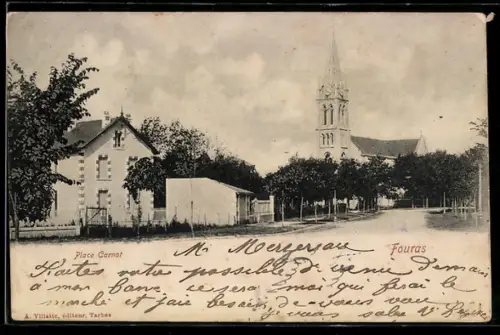 Place Carnot
Fouras
Mr Mergereau
Faites votre possible de venue demain
a mon banc ce sera moi qui ferai le
marché et j'aie besoin de vous
je vous salue
A. Villatte, éditeur, Tarbes